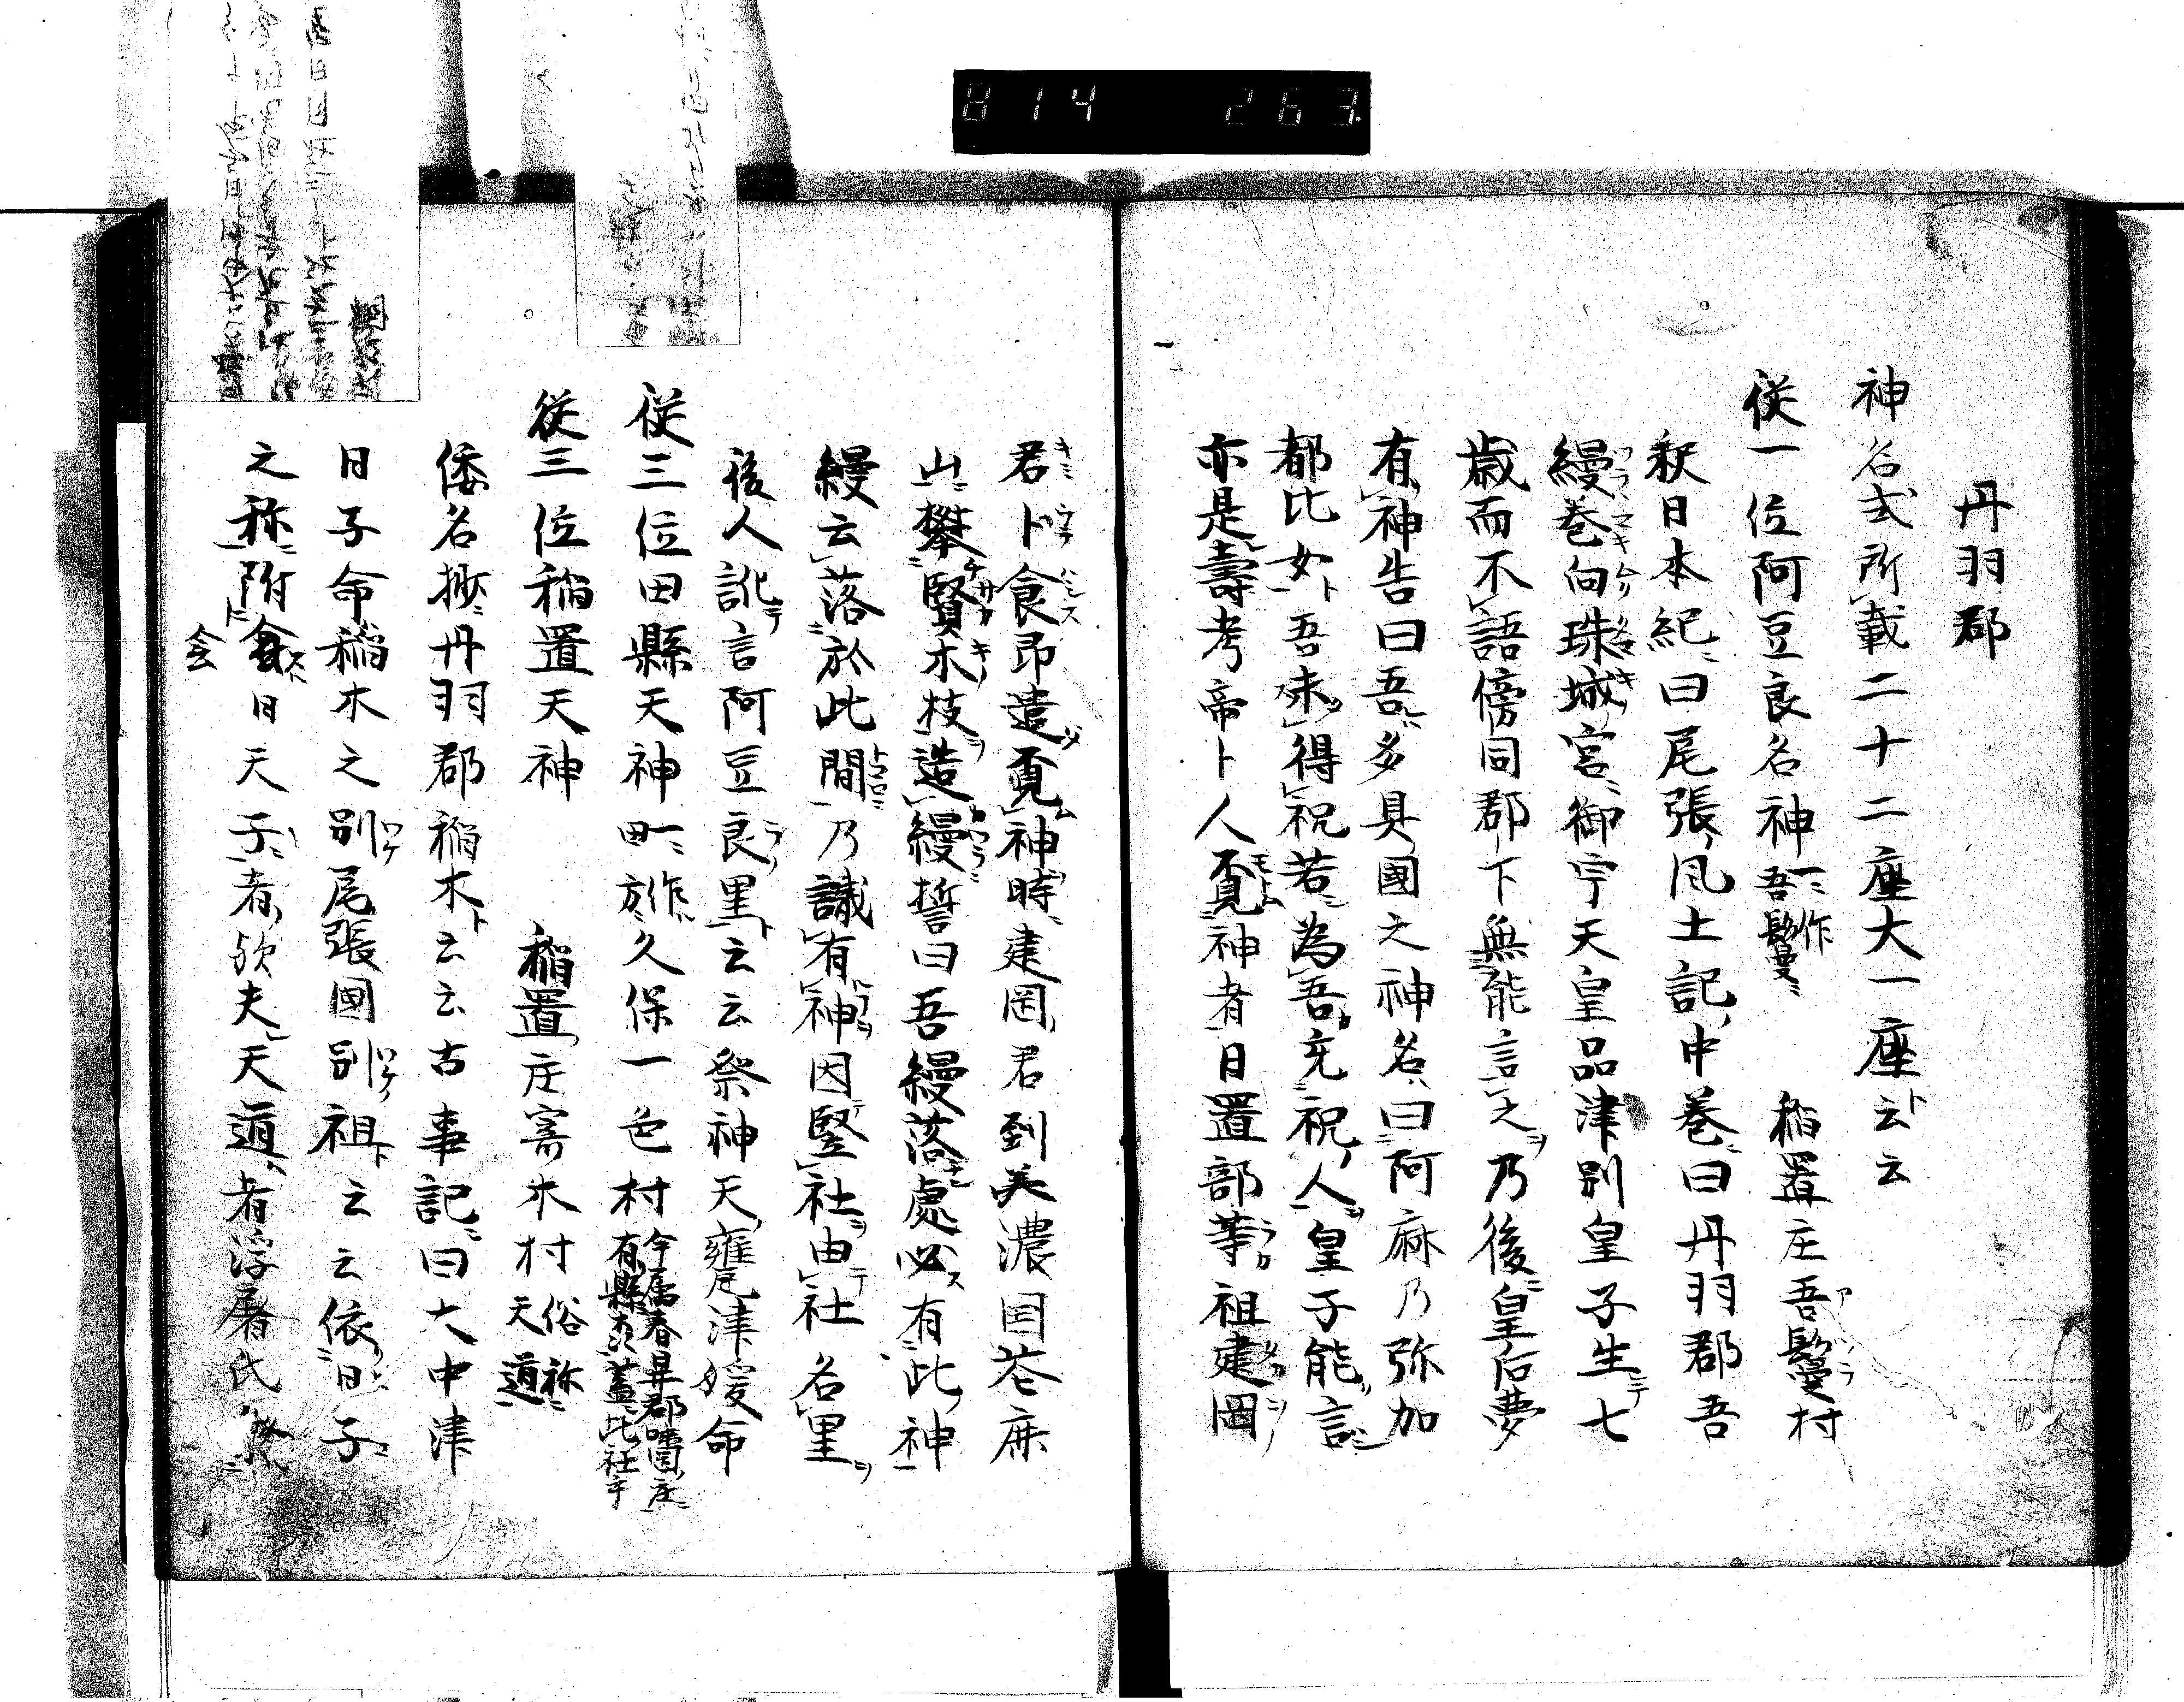 丹羽郡
神名式所載二十二座大一座云云
従一位阿豆良名神 一作吾鬘 稲置庄吾鬘村
釈日本紀曰尾張風土記中巻曰丹羽郡吾
縵巻向珠城宮御宇天皇品津別皇子生七
歳而不語傍同郡下無能言之乃後皇后夢
有神告曰吾多具國之神名曰阿麻乃弥加
都比女吾未得祝若為吾充祝人皇子能言
亦是壽考帝卜人覓神者日置部等祖建岡
君卜食即遣覓神時建岡君到美濃国花鹿
山攀賢木枝造縵誓曰吾縵落處必有此神
縵云落於此間乃識有神因竪社由社名里
後人訛言阿豆良里云云祭神天甕津媛命
従三位田縣天神 一作田方 久保一色村 今属春日井郡 有縣 蓋此社乎
従三位稲置天神 稲置庄寄木村 俗称天道
倭名抄丹羽郡稲木云云古事記曰大中津
日子命稲木之別尾張國別祖云云依日子
之称附会日天子者欤夫天道者浮屠氏
会
814 263